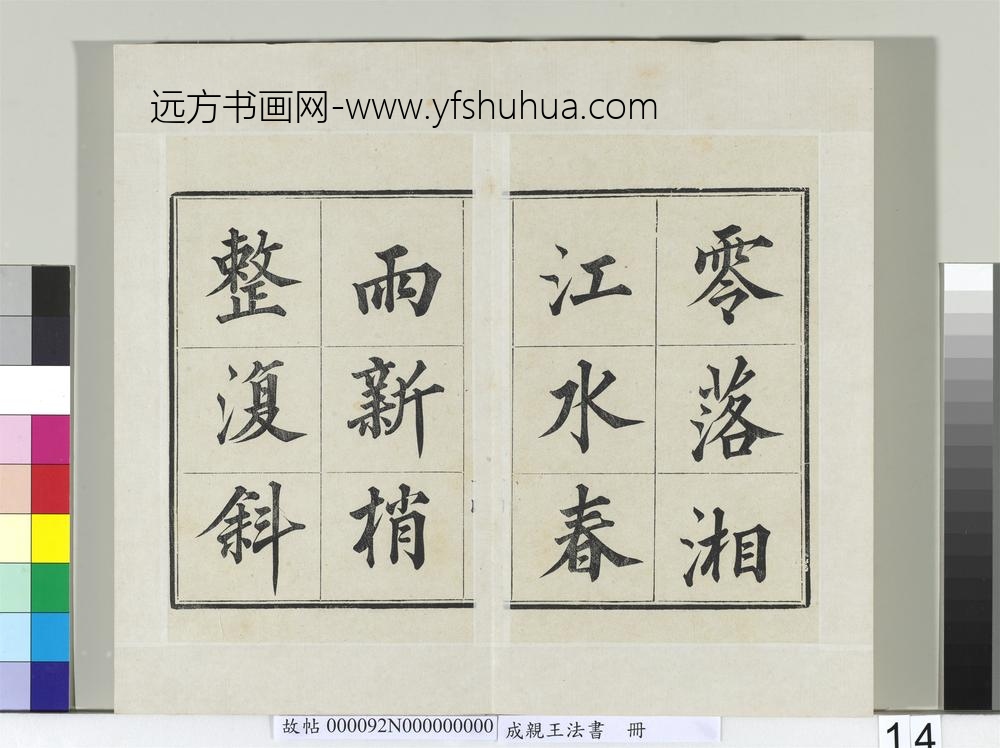 远方书画网-www.yfshuhua.com
零落湘
江水春
雨新梢
整復斜
故帖 000092N000000000 成親王法書 冊
14